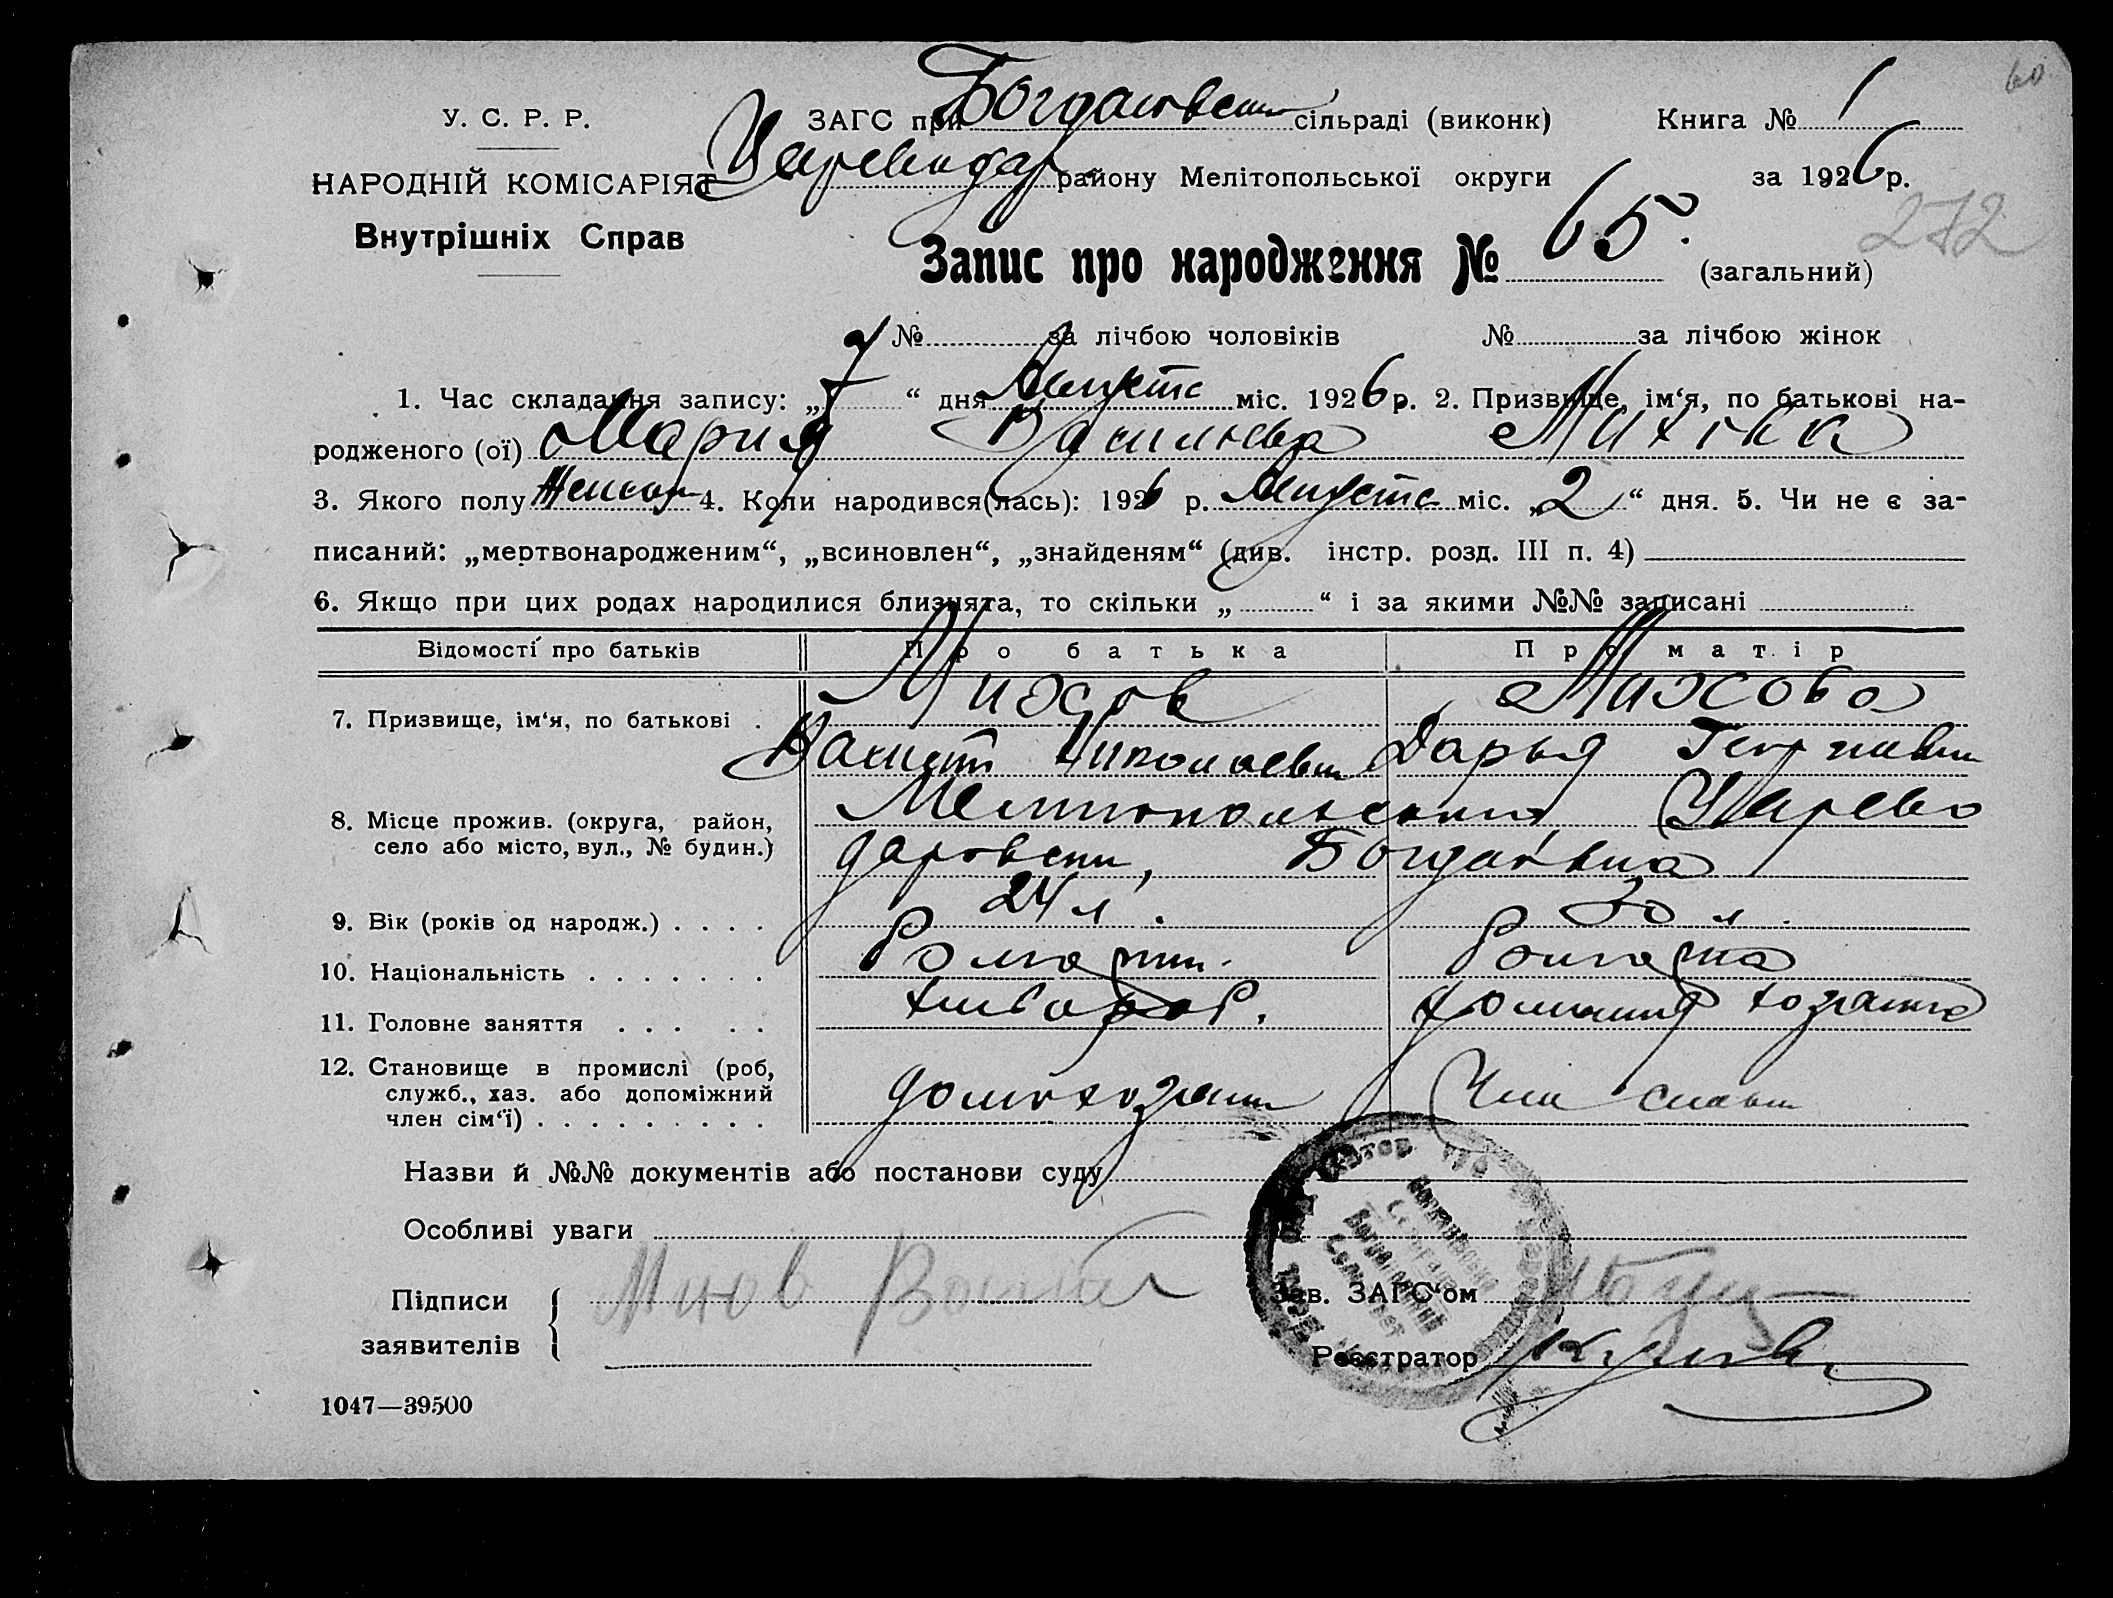 60
У. С. Р. Р.
НАРОДНІЙ КОМІСАРІЯТ
Внутрішніх Справ
ЗАГС при Богдановском сільраді (виконк)
Цареводар. району Мелітопольської округи
Книга № 1
за 1926 р.
272
Запис про народження № 65. (загальний)
№ за лічбою чоловіків № за лічбою жінок
1. Час складання запису: „7“ дня Августа міс. 1926 р. 2. Призвище, ім‘я, по батькові на-
родженого (ої) Мария Васильева
3. Якого полу Женск 4. Коли народився(лась): 1926 р. Августа міс. „2“ дня. 5. Чи не є за-
писаний: „мертвонародженим“, „всиновлен“, „знайденям“ (див. інстр. розд. III п. 4)
6. Якщо при цих родах народилися близнята, то скільки „ “ і за якими №№ записані
Відомості про батьків Про батька Про матір
7. Призвище, ім‘я, по батькові . Михов Михова
Николаевич Дарья Георгиевна
8. Місце прожив. (округа, район, село або місто, вул., № будин.) Мелитопольский, Царево
даровский, Богдановка
9. Вік (років од народж.) . . . . 24 л. 30 л.
10. Національність . . . . . . . Болгарин. Болгарка
11. Головне заняття . . . . . хлебороб. домашняя хозяйка
12. Становище в промислі (роб, служб., хаз. або допоміжний член сім‘ї) . . . . . . . . . домохозяин Член семьи
Назви й №№ документів або постанови суду
Особливі уваги
Підписи заявителів Михов
Зав. ЗАГС‘ом
Реєстратор
1047—39500